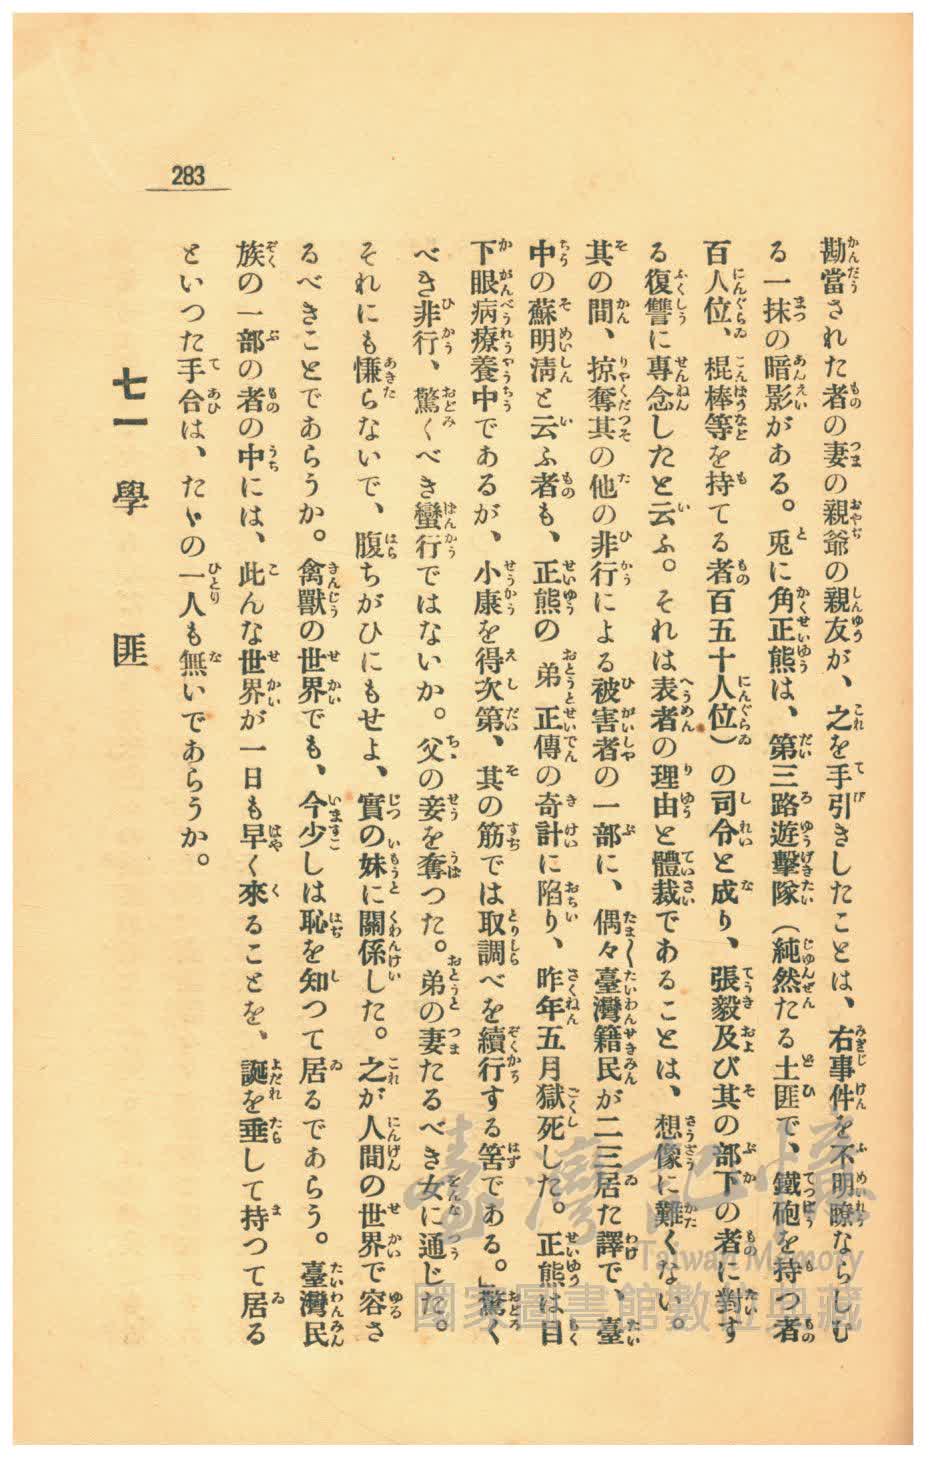 283
勘當された者の妻の親爺の親友が、之を手引きしたことは、右事件を不明瞭ならしむ
る一抹の暗影がある。兎に角正熊は、第三路遊擊隊（純然たる土匪で、鐵砲を持つ者
百人位、棍棒等を持てる者百五十人位）の司令と成り、張毅及び其の部下の者に對す
る復讐に專念したと云ふ。それは表者の理由と體裁であることは、想像に難くない。
其の間、掠奪其の他の非行による被害者の一部に、偶々臺灣籍民が二三居た譯で、臺
中の蘇明淸と云ふ者も、正熊の弟正傳の奇計に陷り、昨年五月獄死した。正熊は目
下眼病療養中であるが、小康を得次第、其の筋では取調べを續行する筈である。」驚く
べき非行、驚くべき蠻行ではないか。父の妾を奪つた。弟の妻たるべき女に通じた。
それにも慊らないで、腹ちがひにもせよ、實の妹に關係した。之が人間の世界で容さ
るべきことであらうか。禽獸の世界でも、今少しは恥を知つて居るであらう。臺灣民
族の一部の者の中には、此んな世界が一日も早く來ることを、誕を垂して持つて居る
といつた手合は、たゞの一人も無いであらうか。
七一 學 匪
臺灣記憶
Taiwan Memory
國家圖書館數位典藏